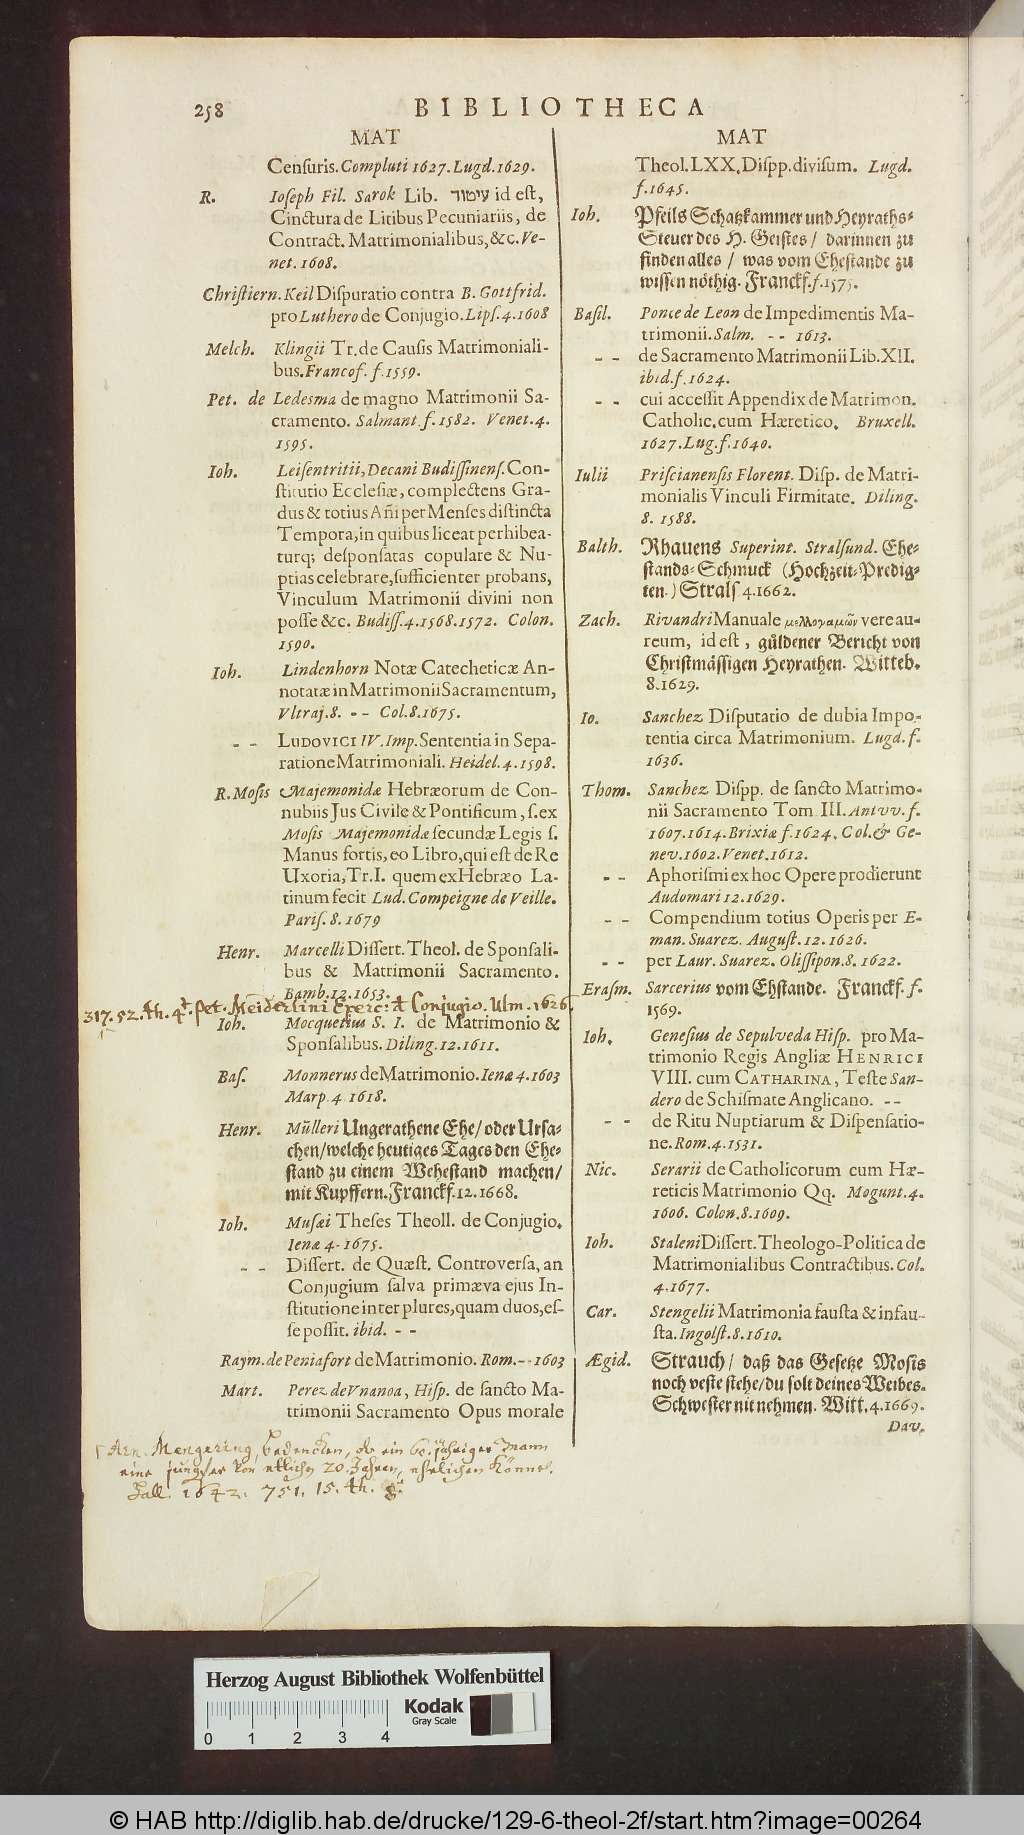 258
BIBLIOTHECA
MAT
Censuris. Compluti 1627. Lugd. 1629.
R. Ioseph Fil. Sarok Lib. עיטור id est,
Cinctura de Litibus Pecuniariis, de
Contract. Matrimonialibus, &c. Ve-
net. 1608.
Christiern. Keil Disputatio contra B. Gottfrid.
pro Luthero de Conjugio. Lips. 4. 1608
Melch. Klingii Tr. de Causis Matrimoniali-
bus. Francof. f. 1559.
Pet. de Ledesma de magno Matrimonii Sa-
cramento. Salmant. f. 1582. Venet. 4.
1595.
Ioh. Leisentritii, Decani Budissinens. Con-
stitutio Ecclesiæ, complectens Gra-
dus & totius Añi per Menses distincta
Tempora, in quibus liceat perhibea-
turq; desponsatas copulare & Nu-
ptias celebrare, sufficienter probans,
Vinculum Matrimonii divini non
posse &c. Budiss. 4. 1568. 1572. Colon.
1590.
Ioh. Lindenhorn Notæ Catecheticæ An-
notatæ in Matrimonii Sacramentum,
Vltraj. 8. -- Col. 8. 1675.
-- LUDOVICI IV. Imp. Sententia in Sepa-
ratione Matrimoniali. Heidel. 4. 1598.
R. Mosis Majemonidæ Hebræorum de Con-
nubiis Jus Civile & Pontificum, s. ex
Mosis Majemonidæ secundæ Legis s.
Manus fortis, eo Libro, qui est de Re
Uxoria, Tr. I. quem ex Hebræo La-
tinum fecit Lud. Compeigne de Veille.
Paris. 8. 1679
Henr. Marcelli Dissert. Theol. de Sponsali-
bus & Matrimonii Sacramento.
Bamb. 12. 1653.
317. 52. th. 4t. Pet. Meiderlini Exerc: d Conjugio. Ulm. 1626.
Ioh. Mocquetius S. I. de Matrimonio &
Sponsalibus. Diling. 12. 1611.
Bas. Monnerus de Matrimonio. Ienæ 4. 1603
Marp. 4 1618.
Henr. Mülleri Ungerathene Ehe/ oder Ursa-
chen/ welche heutiges Tages den Ehe-
stand zu einem Wehestand machen/
mit Kupffern. Franckf. 12. 1668.
Ioh. Musæi Theses Theoll. de Conjugio.
Ienæ 4. 1675.
-- Dissert. de Quæst. Controversa, an
Conjugium salva primæva ejus In-
stitutione inter plures, quam duos, es-
se possit. ibid. --
Raym. de Peniafort de Matrimonio. Rom. -- 1603
Mart. Perez de Vnanoa, Hisp. de sancto Ma-
trimonii Sacramento Opus morale
Arn. Mengering bedencken, ob ein 60. jähriger Mann
eine jungfer von etlichen 20. Jahren, ehelichen Könne.
Hall. 1642. 751. 15. th.
MAT
Theol. LXX. Dispp. divisum. Lugd.
f. 1645.
Ioh. Pfeils Schatzkammer und Heyraths-
Steuer des H. Geistes/ darinnen zu
finden alles/ was vom Ehestande zu
wissen nöthig. Franckf. f. 1575.
Basil. Ponce de Leon de Impedimentis Ma-
trimonii. Salm. -- 1613.
-- de Sacramento Matrimonii Lib. XII.
ibid. f. 1624.
-- cui accessit Appendix de Matrimon.
Catholic. cum Hæretico. Bruxell.
1627. Lug. f. 1640.
Iulii Priscianensis Florent. Disp. de Matri-
monialis Vinculi Firmitate. Diling.
8. 1588.
Balth. Rhauens Superint. Stralsund. Ehe-
stands-Schmuck (Hochzeit-Predig-
ten.) Strals. 4. 1662.
Zach. Rivandri Manuale μελλογαμῶν vere au-
reum, id est, güldener Bericht von
Christmässigen Heyrathen. Witteb.
8. 1629.
Io. Sanchez Disputatio de dubia Impo-
tentia circa Matrimonium. Lugd. f.
1636.
Thom. Sanchez Dispp. de sancto Matrimo-
nii Sacramento Tom III. Antvv. f.
1607. 1614. Brixiæ f. 1624. Col. & Ge-
nev. 1602. Venet. 1612.
-- Aphorismi ex hoc Opere prodierunt
Audomari 12. 1629.
-- Compendium totius Operis per E-
man. Suarez. August. 12. 1626.
-- per Laur. Suarez. Olissipon. 8. 1622.
Erasm. Sarcerius vom Ehstande. Franckf. f.
1569.
Ioh. Genesius de Sepulveda Hisp. pro Ma-
trimonio Regis Angliæ HENRICI
VIII. cum CATHARINA, Teste San-
dero de Schismate Anglicano. --
-- de Ritu Nuptiarum & Dispensatio-
ne. Rom. 4. 1531.
Nic. Serarii de Catholicorum cum Hæ-
reticis Matrimonio Qq. Mogunt. 4.
1606. Colon. 8. 1609.
Ioh. Staleni Dissert. Theologo-Politica de
Matrimonialibus Contractibus. Col.
4. 1677.
Car. Stengelii Matrimonia fausta & infau-
sta. Ingolst. 8. 1610.
Ægid. Strauch/ daß das Gesetze Mosis
noch veste stehe/ du solt deines Weibes-
Schwester nit nehmen. Witt. 4. 1669.
Dav.
Herzog August Bibliothek Wolfenbüttel
Kodak
Gray Scale
0 1 2 3 4
© HAB http://diglib.hab.de/drucke/129-6-theol-2f/start.htm?image=00264